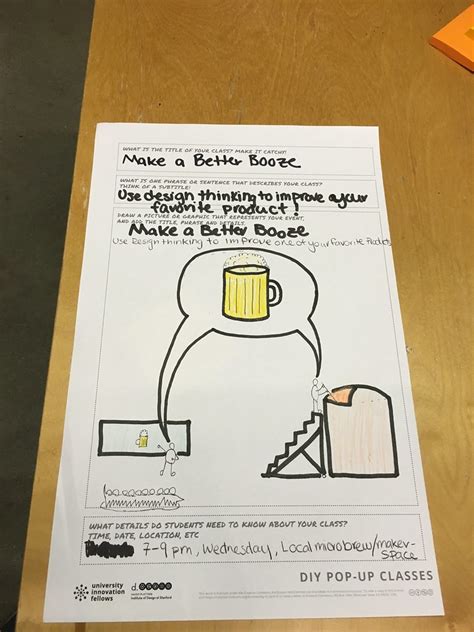 WHAT IS THE TITLE OF YOUR CLASS? MAKE IT CATCHY!
Make a Better Booze
WHAT IS ONE PHRASE OR SENTENCE THAT DESCRIBES YOUR CLASS?
THINK OF A SUBTITLE!
Use design thinking to improve a your
favorite product!
DRAW A PICTURE OR GRAPHIC THAT REPRESENTS YOUR EVENT.
AND ADD THE TITLE, PHRASE AND DETAILS.
Make a Better Booze
Use Design thinking to improve one of your favorite Products
WHAT DETAILS DO STUDENTS NEED TO KNOW ABOUT YOUR CLASS?
TIME, DATE, LOCATION, ETC
7-9 pm, Wednesday, Local microbrew/maker-
space
university
innovation
fellows
d.school
Institute of Design at Stanford
DIY POP-UP CLASSES